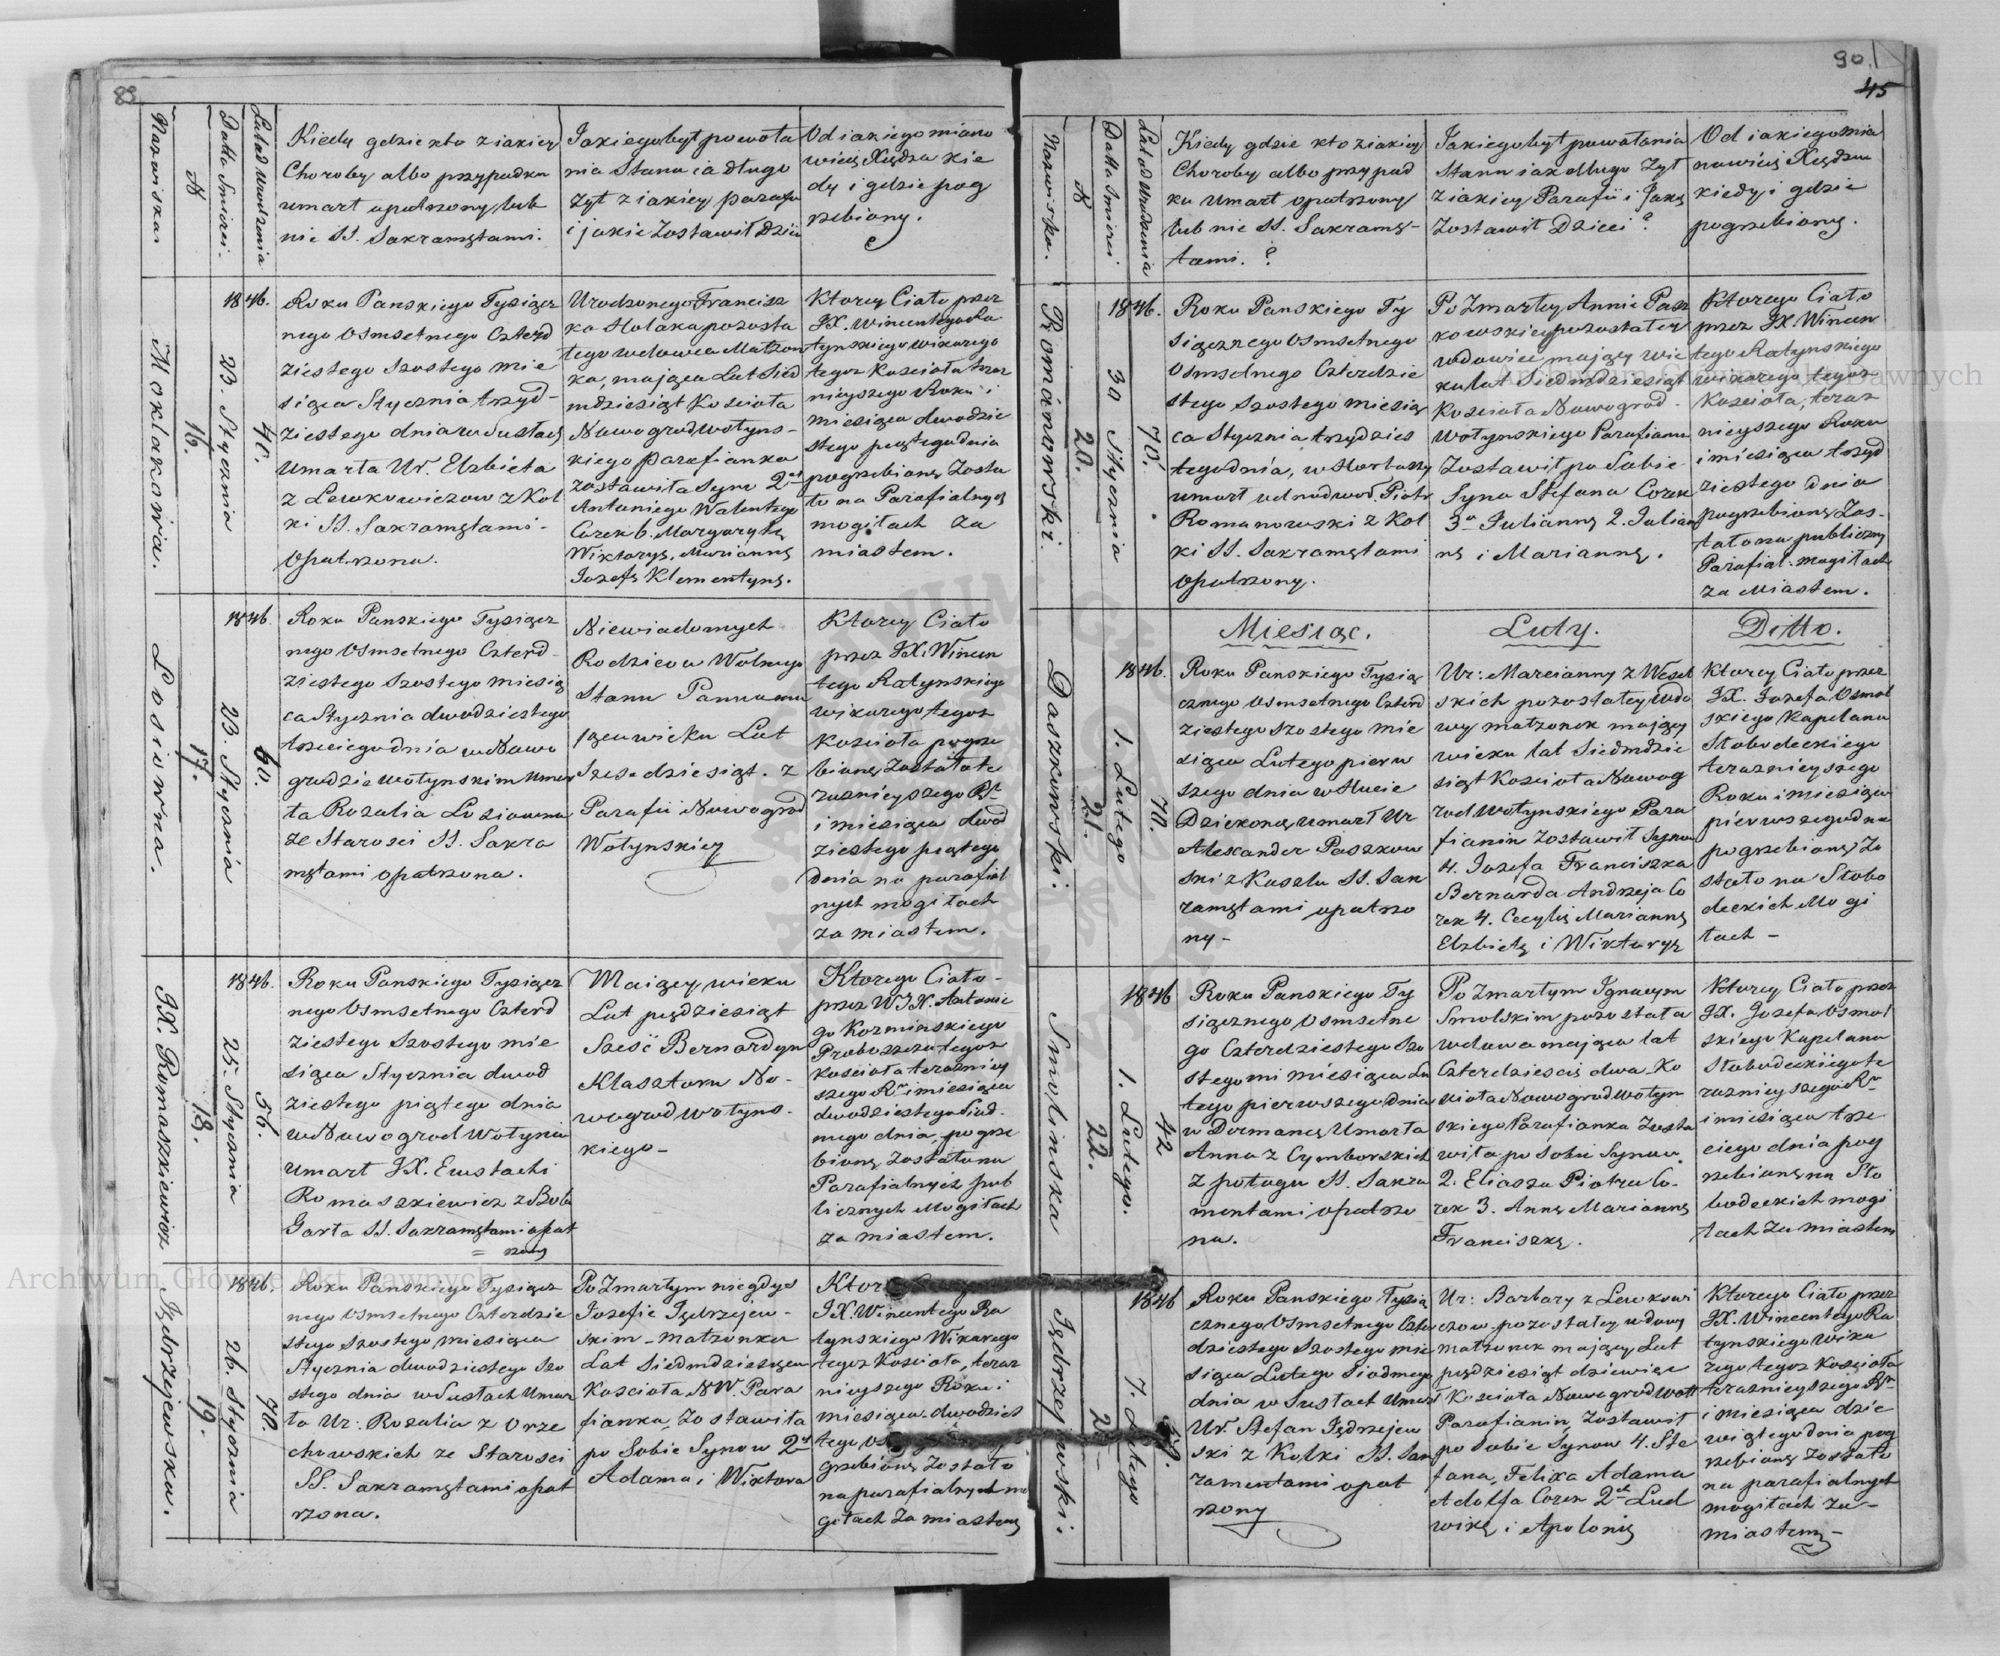 89
Nazwiska
N
Datta Smierci.
Lat od Urodzenia
Kiedy gdzie kto z iakiey
Choroby albo przypadku
umarł opatrzony lub
nie SS. Sakramętami.
Jakiego był powoła
nia Stanu i a długo
żył z iakiey parafii
i jakie zostawił dzieci
Od iakiego miano
wicie Xiędza kie
dy i gdzie pog
rzebiony.
Moklakowia.
16.
1846.
23. Stycznia
40.
Roku Panskiego Tysiącz
nego Osmsetnego Czterd
ziestego Szostego mie
siąca Stycznia trzyd-
ziestego dnia w Sustach
Umarła Ur. Elzbieta
z Lewkowiczow z Kol
ki SS. Sakramętami-
Opatrzona.
Urodzonego Francisz
ka Molaka pozosta
łego wdowca Małżon
ka, maiąca Lat Sied
mdziesiąt Kościoła
Nowogradwołyns-
kiego parafianka
zostawiła Synow 2ch
Antoniego Walentego
Corek 6. Margarytę
Wiktoryę, Mariannę
Jozefę Klementynę.
Ktorey Ciało przez
JX. Wincentego Ra
tynskiego wikarego
tegoz Kościoła teraz
nieyszego Roku i
miesiąca dwodzie
stego piątego dnia
pogrzebione zosta
ło na Parafialnych
mogiłach za
miastem.
Losiowna.
17.
1846.
23. Stycznia
60.
Roku Panskiego Tysiącz
nego Osmsetnego Czterd-
ziestego Szostego miesią
ca Stycznia dwodziestego
trzeciego dnia w Nowo
grodzie wołynskim Umar
ła Rozalia Losiowna
ze Starosci SS. Sakra
mętami opatrzona.
Niewiadomych
Rodzicow Wolnego
Stanu Panna ma
iąca wieku Lat
Szesdziesiąt. z
Parafii Nowogrod
Wołynskiey
Ktorey Ciało
przez JX. Wincen
tego Ratynskiego
wikarego tegoz
Kościoła pogrze
bione Zostało te
raznieyszego R.
i miesiąca dwod
ziestego piątego
dnia na parafial
nych mogiłach
za miastem.
JX. Romaszkiewicz
18.
1846.
25. Stycznia
56.
Roku Panskiego Tysiącz
nego Osmsetnego Czterd
ziestego Szostego mie
siąca Stycznia dwod
ziestego piątego dnia
w Nowogrod Wołynia
umarł JX. Eustachi
Romaszkiewicz z Bolu
Garła SS. Sakramętami opat
= rzony
Maiący wieku
Lat piędziesiąt
Sześć Bernardyn
Klasztoru No-
wogrod Wołyns-
kiego-
Ktorego Ciało-
przez WJX. Antonie
go Kozminskiego
Proboszcza tegoz
kościoła terazniey
szego R. i miesiąca
dwodziestego Siod-
mego dnia, pogrze
bione Zostało na
Parafialnych pub
licznych Mogiłach
za miastem.
Jędrzejewska.
19.
1846.
26. Stycznia
70.
Roku Panskiego Tysiącz
nego Osmsetnego Czterdzie
stego Szostego miesiąca
Stycznia dwodziestego Szo
stego dnia w Sustach Umar
ła Ur: Rozalia z Orze
chowskich ze Starosci
SS. Sakramętami opat
rzona.
Po Zmarłym niegdys
Jozefie Jędrzejew-
skim - małzonka
Lat Siedmdziesiąt
Kościoła NW. Para
fianka, Zostawiła
po Sobie Synow 2ch
Adama i Wiktora
JX. Wincentego Ra
tynskiego Wikarego
tegoz Kościoła, teraz
nieyszego Roku i
miesiąca dwodzies
grzebione Zostało
na parafialnych mo
giłach za miastem
90.
45
Nazwiska.
N
Datta Smierci
Lat od Urodzenia
Kiedy gdzie kto z iakiey
Choroby albo przypad
ku Umarł opatrzony
lub nie SS. Sakramę-
tami. ?
Jakiego był powołania
Stanu i ak długo żył
z iakiey Parafii i Jakie
Zostawił Dzieci ?
Od iakiego mia
nowicie Xiędza
kiedy i gdzie
pogrzebiony.
Romanowski.
20.
1846.
30 Stycznia
70.
Roku Panskiego Ty
siącznego Osmsetnego
Osmsetnego Czterdzie
stego Szostego miesią
ca Stycznia trzydzies
tego dnia, w
umarł odnodwor. Piotr
Romanowski z Kol
ki SS. Sakramętami
Opatrzony.
Po Zmarłey Annie Pasz
kowskiey pozostałey
wdowiec maiący wie
ku lat Siedmdziesiąt
Kościoła Nowogrod-
Wołynskiego Parafianin
Zostawił po Sobie
Syna Stefana Corek
3ch Juliannę 2. Julian
nę i Mariannę.
Ktorego Ciało
przez JX. Wincen
tego Ratynskiego
wikarego tegoz
Kościoła, teraz
nieyszego Roku
i miesiąca trzyd
ziestego dnia
pogrzebione Zos-
tało na publiczny
Parafial. mogiłach
za Miastem.
Miesiąc.
Luty.
Ditto.
Daszkowski.
21.
1846.
1. Lutego
70.
Roku Panskiego Tysią
cznego Osmsetnego Czterd
ziestego Szostego mie
siąca Lutego pierw
szego dnia w Hucie
Dziekona umarł Ur
Alexander Paszkow
ski z Kaszlu SS. Sak
ramętami opatrzo
ny-
Ur: Marcianny z Wesel
skich pozostałey wdo
wy małzonek maiący
wieku lat Siedmdzie
siąt Kościoła Nowog
rod Wołynskiego Para
fianin Zostawił Synow
4. Jozefa Franciszka
Bernarda Andrzeja Co
rek 4. Cecylię Mariannę
Elzbietę i Wiktoryę
Ktorey Ciało przez
JX. Jozefa Osmol
skiego Kapelana
Słobodeckiego
teraznieyszego
Roku i miesiąca
pierwszego dnia
pogrzebione Zo
stało na Słobo
deckich Mogi
łach-
Smolinska
22.
1846
1. Lutego.
42
Roku Panskiego Ty
siącznego Osmsetne
go Czterdziestego Szo
stego mi miesiąca Lu
tego pierwszego dnia
w Dermance Umarła
Anna z Cymborskich
z połogu SS. Sakra
mentami opatrzo
na.
Po Zmarłym Ignacym
Smolskim pozostała
wdowa maiąca lat
Czterdziescie dwa. Ko
scioła Nowogrodwołyn
skiego Parafianka Zosta
wiła po Sobie Synow.
2. Eliasza Piotra Co-
rek 3. Annę Mariannę
Franciszkę.
Ktorey Ciało przez
JX. Jozefa Osmol
skiego Kapelana
Słobodeckiego te
raznieyszego R.
i miesiąca trze
ciego dnia pog
rzebione na Sło
bodeckich mogi
łach za miastem
Jędrzejowski.
1846
7. Lutego
59.
Roku Panskiego Tysią
cznego Osmsetnego Czter
dziestego Szostego mie
siąca Lutego Siodmego
dnia w Sustach Umarł
Ur. Stefan Jędrzejew
ski z Kolki SS. Sak
ramentami opat
rzony
Ur: Barbary z Lewkowi
czow pozostałey wdowy
małzonek maiący Lat
piędziesiąt dziewięc
Kościoła Nowogrod Woł
Parafianin, Zostawił
po Sobie Synow 4. Ste
fana, Felixa Adama
Adolfa Corek 2ch Lud
wikę i Apolonię
Ktorego Ciało przez
JX. Wincentego Ra
tynskiego wika
rego tegoz Kościoła
teraznieyszego R.
i miesiąca dzie
wiątego dnia pog
rzebione Zostało
na parafialnych
mogiłach za-
miastem-
Archiwum Główne Akt Dawnych
Archiwum Główne Akt Dawnych